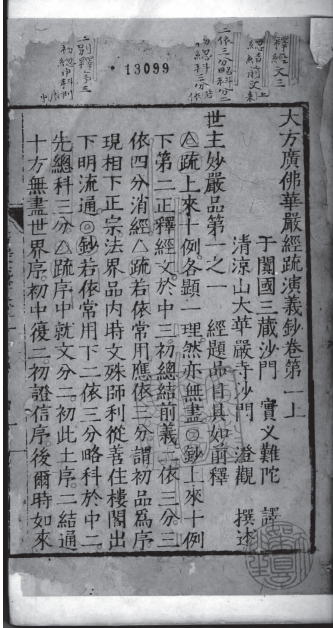 大方廣佛華嚴經疏演義鈔卷第一上
于闐國三藏沙門 實叉難陀 譯
清涼山大華嚴寺沙門 澄觀 撰述
世主妙嚴品第一之一 經題品目具如前釋
△疏上來十例各題一理然亦無盡◎鈔上來十例
下第二正釋經文於中三初總結前義二依三分三
依四分消經△疏若依常用應依三分謂初品爲序
現相下正宗法界品內時文殊師利從善住樓閣出
下明流通◎鈔若依常用下二依三分略科於中二
先總科三分△疏序中就文分二初此土序二結通
十方無盡世界序初中復二初證信序後爾時如來
釋經文三
總結前文
二依三分略科分二
二別釋第三
13099